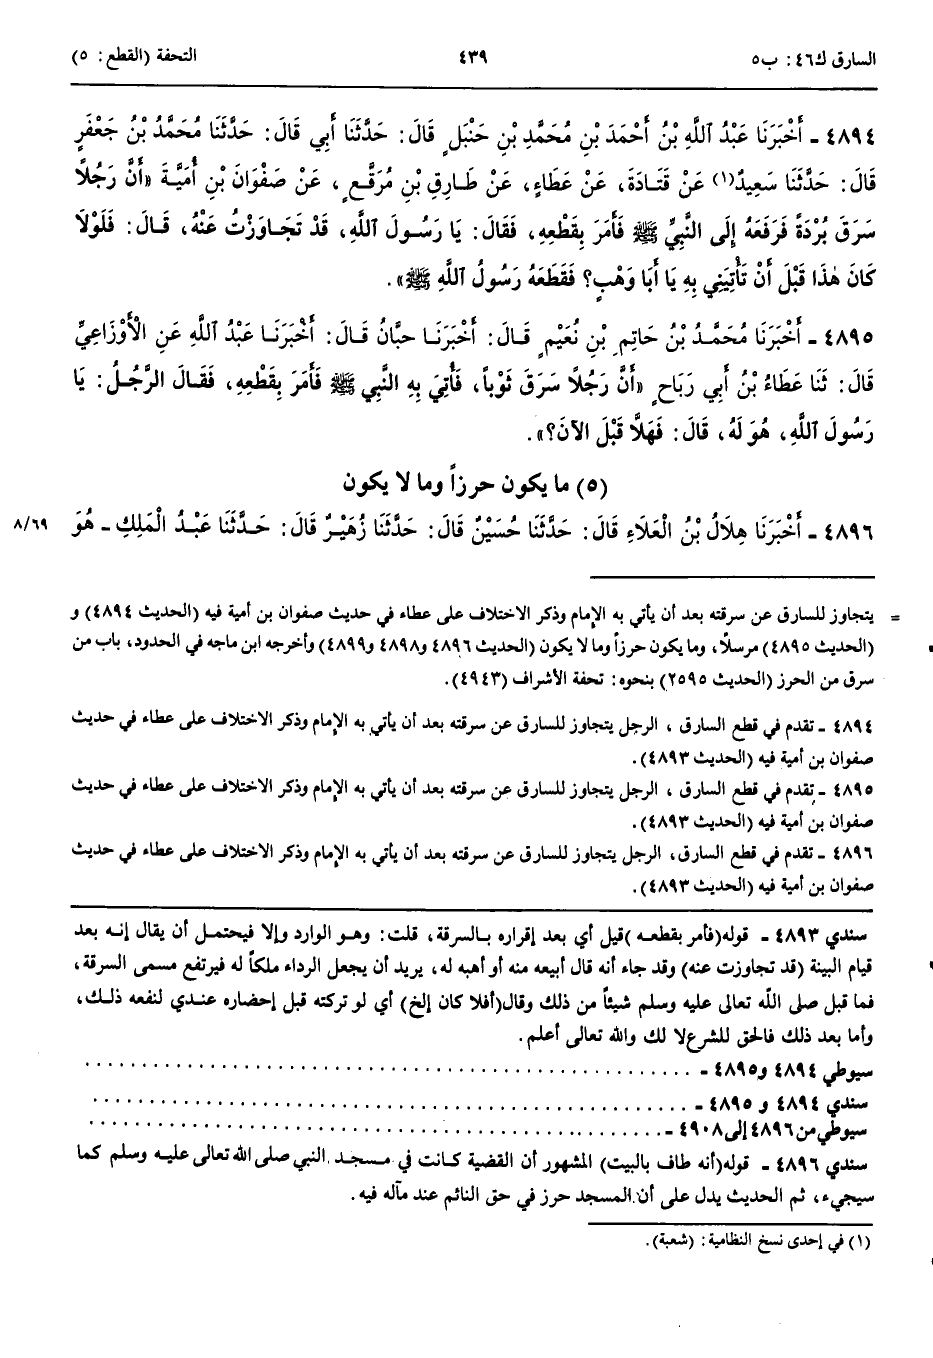 السارق ك٤٦: ب٥ ٤٣٩ التحفة (القطع: ٥)
٤٨٩٤ ـ أَخْبَرَنَا عَبْدُ ٱللَّهِ بْنُ أَحْمَدَ بْنِ مُحَمَّدِ بْنِ حَنْبَلٍ قَالَ: حَدَّثَنَا أَبِي قَالَ: حَدَّثَنَا مُحَمَّدُ بْنُ جَعْفَرٍ
قَالَ: حَدَّثَنَا سَعِيدٌ(١) عَنْ قَتَادَةَ، عَنْ عَطَاءٍ، عَنْ طَارِقِ بْنِ مُرَقَّعٍ، عَنْ صَفْوَانَ بْنِ أُمَيَّةَ «أَنَّ رَجُلاً
سَرَقَ بُرْدَةً فَرَفَعَهُ إِلَى النَّبِيِّ ﷺ فَأَمَرَ بِقَطْعِهِ، فَقَالَ: يَا رَسُولَ ٱللَّهِ، قَدْ تَجَاوَزْتُ عَنْهُ، قَالَ: فَلَوْلَا
كَانَ هٰذَا قَبْلَ أَنْ تَأْتِيَنِي بِهِ يَا أَبَا وَهْبٍ؟ فَقَطَعَهُ رَسُولُ ٱللَّهِ ﷺ».
٤٨٩٥ ـ أَخْبَرَنَا مُحَمَّدُ بْنُ حَاتِمِ بْنِ نُعَيْمٍ قَالَ: أَخْبَرَنَا حِبَّانُ قَالَ: أَخْبَرَنَا عَبْدُ ٱللَّهِ عَنِ الْأَوْزَاعِيِّ
قَالَ: ثَنَا عَطَاءُ بْنُ أَبِي رَبَاحٍ «أَنَّ رَجُلاً سَرَقَ ثَوْباً، فَأُتِيَ بِهِ النَّبِي ﷺ فَأَمَرَ بِقَطْعِهِ، فَقَالَ الرَّجُلُ: يَا
رَسُولَ ٱللَّهِ، هُوَ لَهُ، قَالَ: فَهَلَّا قَبْلَ الآنَ؟».
(٥) ما يكون حرزاً وما لا يكون
٤٨٩٦ ـ أَخْبَرَنَا هِلَالُ بْنُ الْعَلَاءِ قَالَ: حَدَّثَنَا حُسَيْنٌ قَالَ: حَدَّثَنَا زُهَيْرٌ قَالَ: حَدَّثَنَا عَبْدُ الْمَلِكِ ـ هُوَ ٨/٦٩
= يتجاوز للسارق عن سرقته بعد أن يأتي به الإمام وذكر الاختلاف على عطاء في حديث صفوان بن أمية فيه (الحديث ٤٨٩٤) و
(الحديث ٤٨٩٥) مرسلاً، وما يكون حرزاً وما لا يكون (الحديث ٤٨٩٦ و٤٨٩٨ و٤٨٩٩) وأخرجه ابن ماجه في الحدود، باب من
سرق من الحرز (الحديث ٢٥٩٥) بنحوه: تحفة الأشراف (٤٩٤٣).
٤٨٩٤ ـ تقدم في قطع السارق، الرجل يتجاوز للسارق عن سرقته بعد أن يأتي به الإمام وذكر الاختلاف على عطاء في حديث
صفوان بن أمية فيه (الحديث ٤٨٩٣).
٤٨٩٥ ـ تقدم في قطع السارق، الرجل يتجاوز للسارق عن سرقته بعد أن يأتي به الإمام وذكر الاختلاف على عطاء في حديث
صفوان بن أمية فيه (الحديث ٤٨٩٣).
٤٨٩٦ ـ تقدم في قطع السارق، الرجل يتجاوز للسارق عن سرقته بعد أن يأتي به الإمام وذكر الاختلاف على عطاء في حديث
صفوان بن أمية فيه (الحديث ٤٨٩٣).
سندي ٤٨٩٣ ـ قوله(فأمر بقطعه) قيل أي بعد إقراره بالسرقة، قلت: وهو الوارد وإلا فيحتمل أن يقال إنه بعد
قيام البينة (قد تجاوزت عنه) وقد جاء أنه قال أبيعه منه أو أهبه له، يريد أن يجعل الرداء ملكاً له فيرتفع مسمى السرقة،
فما قبل صلى الله تعالى عليه وسلم شيئاً من ذلك وقال(أفلا كان إلخ) أي لو تركته قبل إحضاره عندي لنفعه ذلك،
وأما بعد ذلك فالحق للشرع لا لك والله تعالى أعلم.
سيوطي ٤٨٩٤ و٤٨٩٥ ـ ............................................
سندي ٤٨٩٤ و ٤٨٩٥ ـ ............................................
سيوطي من ٤٨٩٦ إلى ٤٩٠٨ ـ ............................................
سندي ٤٨٩٦ ـ قوله(أنه طاف بالبيت) المشهور أن القضية كانت في مسجد النبي صلى الله تعالى عليه وسلم كما
سيجيء، ثم الحديث يدل على أن المسجد حرز في حق النائم عند مآله فيه.
(١) في إحدى نسخ النظامية: (شعبة).